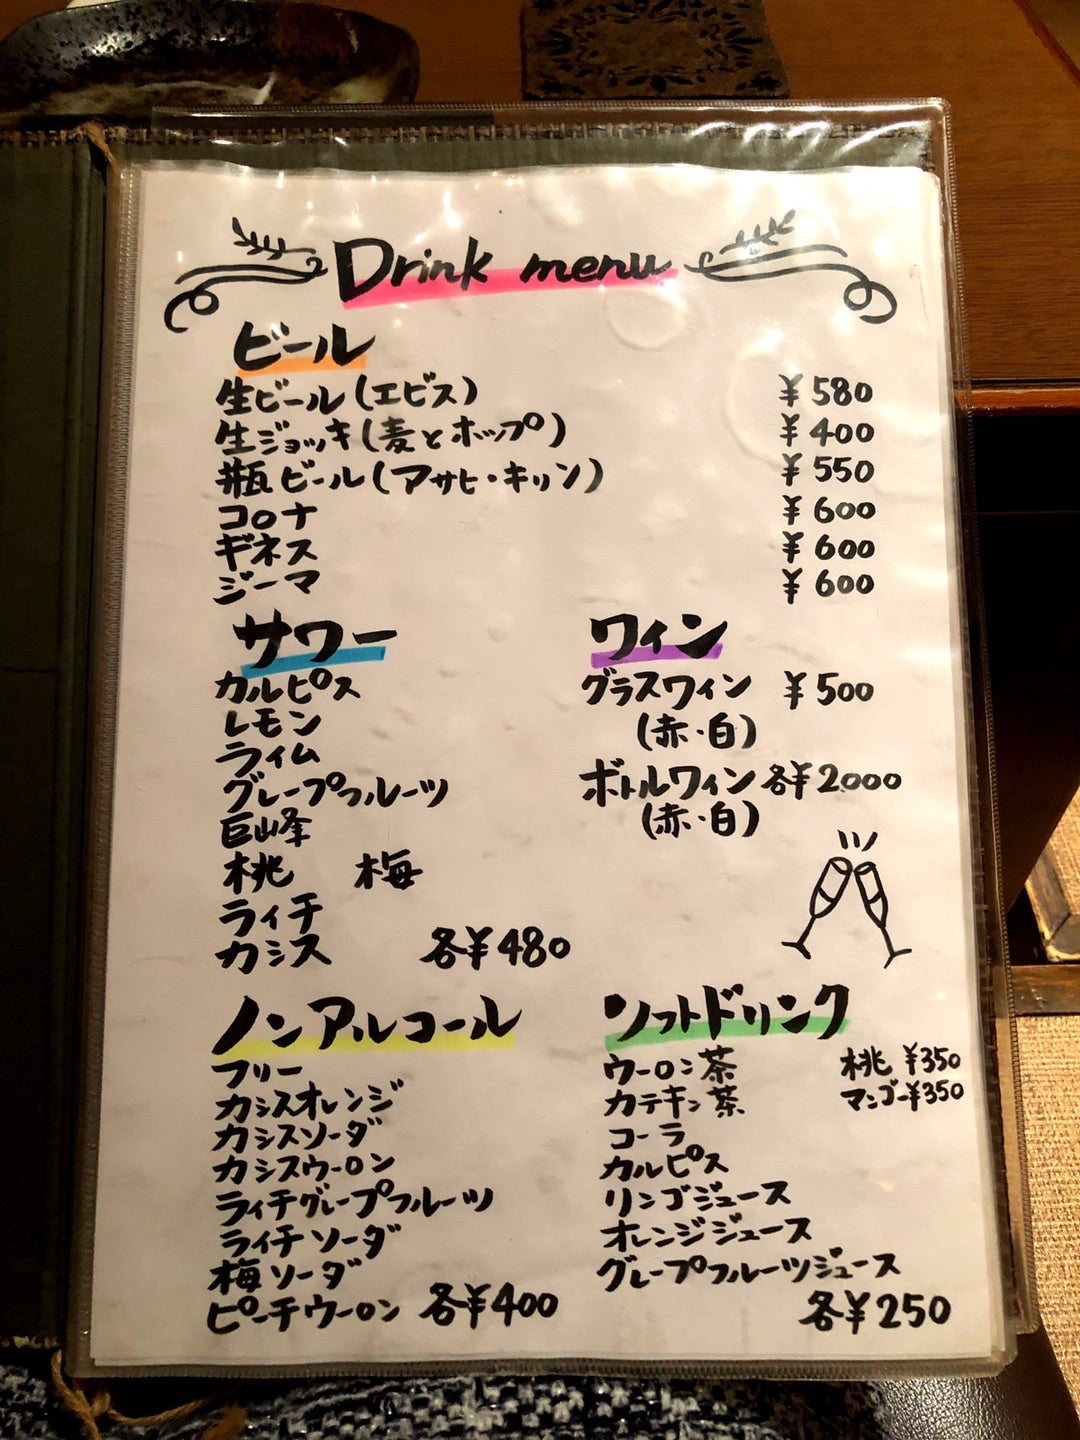 Drink menu
ビール
生ビール(エビス) ¥580
生ジョッキ(麦とホップ) ¥400
瓶ビール(アサヒ・キリン) ¥550
コロナ ¥600
ギネス ¥600
ジーマ ¥600
サワー
カルピス
レモン
ライム
グレープフルーツ
巨峰
桃 梅
ライチ
カシス 各¥480
ワイン
グラスワイン ¥500
(赤・白)
ボトルワイン 各¥2,000
(赤・白)
ノンアルコール
フリー
カシスオレンジ
カシスソーダ
カシスウーロン
ライチグレープフルーツ
ライチソーダ
梅ソーダ
ピーチウーロン 各¥400
ソフトドリンク
ウーロン茶 桃 ¥350
カテキン茶 マンゴー¥350
コーラ
カルピス
リンゴジュース
オレンジジュース
グレープフルーツジュース
各¥250